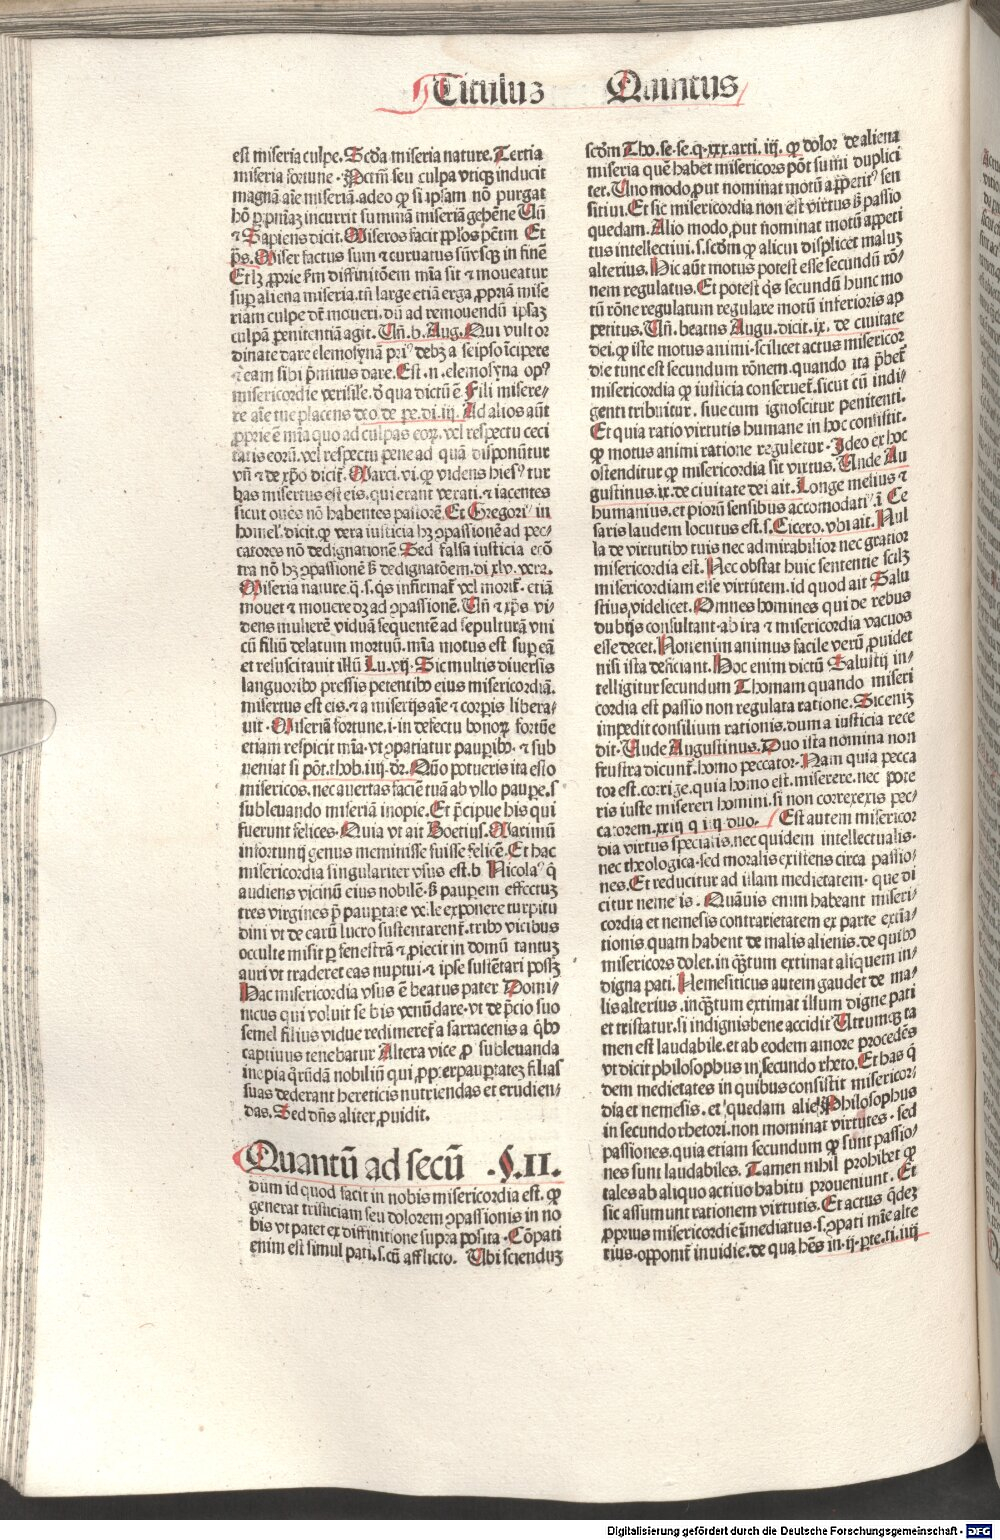 Titulus Quintus
est miseria culpe. Scda miseria nature. Tertia
miseria fortune. Pctm̄ seu culpa vtiqꝫ inducit
magnā aīe miseriā. adeo ꝙ si ipsam nō purgat
hō ꝑ pn̄iaꝫ incurrit summā miseriā gehēne Un̄
⁊ Sapiens dicit. Miseros facit ppl̄os pctm̄. Et
p̄s. Miser factus sum ⁊ curuatus sū vsqꝫ in finē
Et lꝫ ꝓprie scd̄m diffinitōem mīa sit ⁊ moueatur
suꝑ aliena miseria. tn̄ large etiā erga ꝓpriā mise
riam culpe dr̄ moueri. dū ad remouendū ipsaꝫ
culpā penitentiā agit. Un̄. b. Aug. Qui vult or
dinate dare elemosynā priꝰ debꝫ a seipso īcipere
⁊ eam sibi p̄mitus dare. Est .n. elemosyna opꝰ
misericordie
re aīe tue placens deo de pe. di. iij. Ad alios aūt
ꝓprie ē mīa quo ad culpas eoꝝ. vel respectu ceci
tatis eorū. vel respectu pene ad quā disponūtur
vn̄ ⁊ de xp̄o dicit᷑. Marci. vi. ꝙ videns hiesꝰ tur
bas misertus est eis. qui erant vexati. ⁊ iacentes
sicut oues nō habentes pastorē. Et Gregoriꝰ in
homel. dicit. ꝙ vera iusticia hꝫ ꝯpassionē ad pec-
catores nō dedignationē. Sed falsa iusticia ecō
tra nō hꝫ ꝯpassionē sꝫ dedignatōem. di xlv. vera.
Miseria nature. q̄. s. q̄s infirmat᷑ vel morit᷑. etiā
mouet ⁊ mouere dꝫ ad ꝯpassionē. Un̄ ⁊ xp̄s vi-
dens mulierē viduā sequentē ad sepulturā vni
cū filiū delatum mortuū. mīa motus est suꝑ eā
et resuscitauit illū Lu. vij. Sic multis diuersis
languoribꝰ pressis petentibꝰ eius misericordiā.
misertus est eis. ⁊ a miserijs aīe ⁊ corꝑis libera-
uit. Miseriā fortune. i. in defectu bonoꝝ fortūe
etiam respicit mīa. vt ꝯpatiatur pauꝑibꝰ. ⁊ sub
ueniat si pōt. thob. iiij. dr̄. Quō potueris ita esto
misericos. nec auertas faciē tuā ab vllo paupe. s.
subleuando miseriā inopie. Et p̄cipue his qui
fuerunt felices. Quia vt ait Boetius. Maximū
infortunij genus meminisse fuisse felicē. Et hac
misericordia singulariter vsus est. b. Nicolaꝰ q̄
audiens vicinū eius nobilē. sꝫ pauꝑem effectuꝫ
tres virgines p̄ pauꝑtate velle exponere turpitu
dini vt de earū lucro sustentarent᷑. tribꝰ vicibus
occulte misit ꝑ fenestrā ⁊ ꝓiecit in domū tantuꝫ
auri vt traderet eas nuptui. ⁊ ipse sustētari possꝫ
Hac misericordia vsus ē beatus pater Domi-
nicus qui voluit se bis venūdare. vt de p̄cio suo
semel filius vidue redimeret᷑ a sarracenis a qbꝰ
captiuus tenebatur. Altera vice ꝓ subleuanda
inopia q̄rūdā nobiliū qui ꝓpter pauꝑtateꝫ filias
suas dederant hereticis nutriendas et erudien-
das. Sed dn̄s aliter ꝓuidit.
Quantū ad secū .§.II.
dum id quod facit in nobis misericordia est. ꝙ
generat tristiciam seu dolorem ꝯpassionis in no
bis vt patet ex diffinitione supra posita. Cōpati
enim est simul pati. s. cū afflicto. Ubi sciendūꝫ
scd̄m Tho. se. se. q. xxx. arti. iij. ꝙ dolor de aliena
miseria quē habet misericors pōt sumi duplici
ter. Uno modo, put nominat motū appetitꝰ sen
sitiui. Et sic misericordia non est virtus sꝫ passio
quedam. Alio modo, put nominat motū appeti
tus intellectiui. s. scd̄m ꝙ alicui displicet maluꝫ
alterius. Hic aūt motus potest esse secundū rō-
nem regulatus. Et potest q̄s secundū hunc mo
tū rōne regulatum regulare motū inferioris ap
petitus. Un̄. beatus Augu. dicit. ix. de ciuitate
dei. ꝙ iste motus animi. scilicet actus misericor
die tunc est secundum rōnem. quando ita p̄bet᷑
misericordia ꝙ iusticia conseruet᷑. sicut cū indi-
genti tribuitur. siue cum ignoscitur penitenti.
Et quia ratio virtutis humane in hoc consistit.
ꝙ motus animi ratione reguletur. Ideo ex hoc
ostenditur ꝙ misericordia sit virtus. Unde Au
gustinus. ix. de ciuitate dei ait. Longe melius ⁊
humanius. et piorū sensibus accomodatiꝰ ī Ce
saris laudem locutus est. s. Cicero. vbi ait. Nul
la de virtutibꝰ tuis nec admirabilior nec gratior
misericordia est. Nec obstat huic sententie scilꝫ
misericordiam esse virtutem. id quod ait Salu
stius, videlicet. Omnes homines qui de rebus
dubijs consultant. ab ira ⁊ misericordia vacuos
esse decet. Non enim animus facile verū ꝓuidet
nisi ista deficiant. Hoc enim dictū Salustij in-
telligitur secundum Thomam quando miseri
cordia est passio non regulata ratione. Sic eniꝫ
impedit consilium rationis. dum a iusticia rece
dit. Unde Augustinus. Duo ista nomina non
frustra dicunt᷑. homo peccator. Nam quia pecca
tor est. corrige. quia homo est. miserere. nec pote
ris iuste misereri homini. si non correxeris pec-
catorem. xxiij q iiij duo. Est autem misericor
dia virtus specialis. nec quidem intellectualis.
nec theologica. sed moralis existens circa passio-
nes. Et reducitur ad illam medietatem. que di
citur nemesis. Quāuis enim habeant miseri-
cordia et nemesis contrarietatem ex parte extīa-
tionis. quam habent de malis alienis. de quibꝰ
misericors dolet. in qꝫtum extimat aliquem in-
digna pati. Nemesiticus autem gaudet de ma-
lis alterius. inqꝫtum extimat illum digne pati
et tristatur. si indignis bene accidit Utrumqꝫ ta
men est laudabile. et ab eodem amore procedēs
vt dicit philosophus in secundo rheto. Et has q̄
dem medietates in quibus consistit misericor-
dia et nemesis. et quedam alie Philosophus
in secundo rhetori. non nominat virtutes. sed
passiones. quia etiam secundum ꝙ sunt passio-
nes sunt laudabiles. Tamen nihil prohibet ꝙ
tales ab aliquo actiuo habitu proueniunt. Et
sic assumunt rationem virtutis. Et actus q̄deꝫ
ꝓprius misericordie īmediatus. s. ꝯpati mīe alte
rius. opponit᷑ inuidie. de qua hēs in. ij. ꝑte. ti. iiij
Digitalisierung gefördert durch die Deutsche Forschungsgemeinschaft - DFG